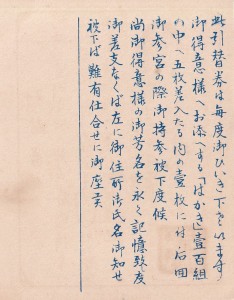 此引替券は毎度御ひいき下さいます
御得意様へお添へする「はがき」壹百組
の中へ五枚差入たる内の壹枚に付后回
御参宮の際御持参被下度候
尚御得意様の御芳名を永く記憶致度
御差支なくば左に御住所御氏名御知せ
被下ば難有仕合せに御座候